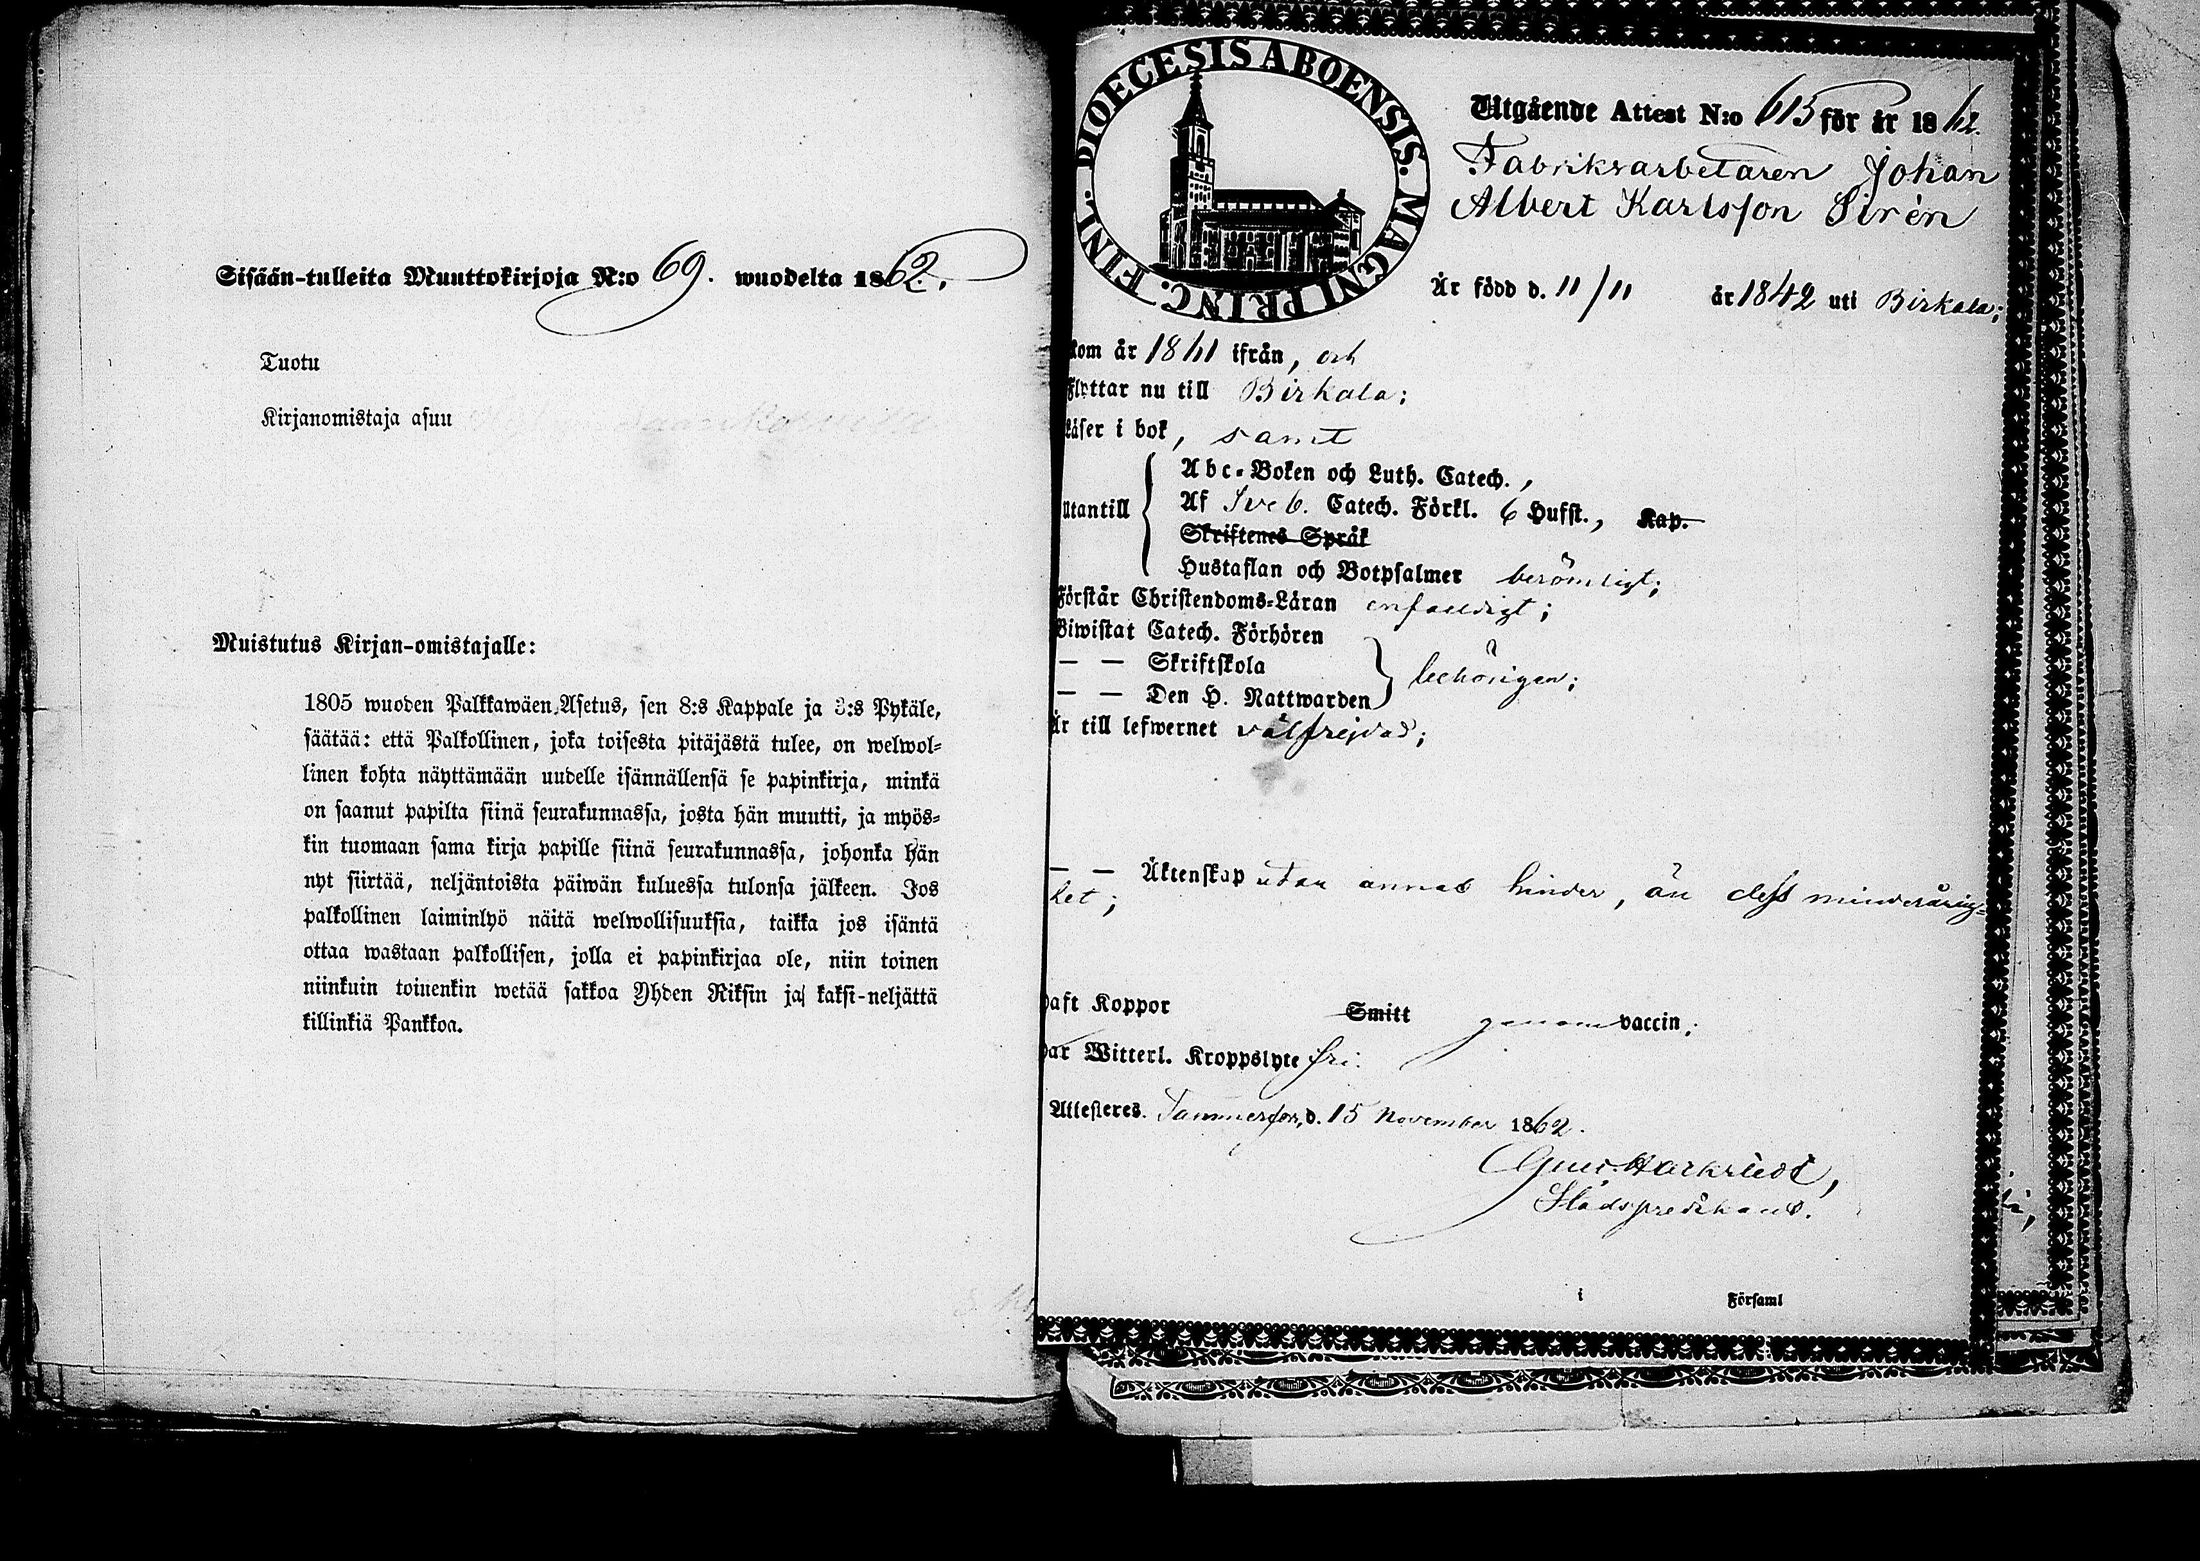 Sisään-tulleita Muuttokirjoja N:o 69. wuodelta 1862.
Tuotu
Kirjanomistaja asuu
Muistutus Kirjan-omistajalle:
1805 wuoden Palkkawäen Asetus, sen 8:s Kappale ja 3:s Pykäle,
säätää: että Palkollinen, joka toisesta pitäjästä tulee, on welwol-
linen kohta näyttämään uudelle isännällensä se papinkirja, minkä
on saanut papilta siinä seurakunnassa, josta hän muutti, ja myös-
kin tuomaan sama kirja papille siinä seurakunnassa, johonka hän
nyt siirtää, neljäntoista päiwän kuluessa tulonsa jälkeen. Jos
palkollinen laiminlyö näitä welwollisuuksia, taikka jos isäntä
ottaa wastaan palkollisen, jolla ei papinkirjaa ole, niin toinen
niinkuin toinenkin wetää sakkoa Yhden Riksin ja kaksi-neljättä
killinkiä Pankkoa.
DIOECESIS ABOENSIS. MAGNI PRINC. FINL.
Utgående Attest N:o 615 för år 1862.
Fabriksarbetaren Johan
Albert Karlsson Sirén
Är född d. 11/11 år 1842 uti Birkala;
kom år 1861 ifrån, och
Flyttar nu till Birkala;
Läser i bok, samt
Utantill
Abc-Boken och Luth. Catech.,
Af Sveb. Catech. Förkl. 6 Hufst., Kap.
Skriftenes Språk
Hustaflan och Botpsalmer berömligt;
Förstår Christendoms-Läran enfaldigt;
Biwistat Catech. Förhören
— — Skriftskola
— — Den H. Nattwarden
behörigen;
Är till lefwernet välfrejdad;
— — Äktenskap utan annat hinder, än dess minderårig-
het;
Haft Koppor Smitt genom vaccin;
Har Witterl. Kroppslyte fri.
Attesteres. Tammerfors, d. 15 November 1862.
Stadspredikant.
i Församl